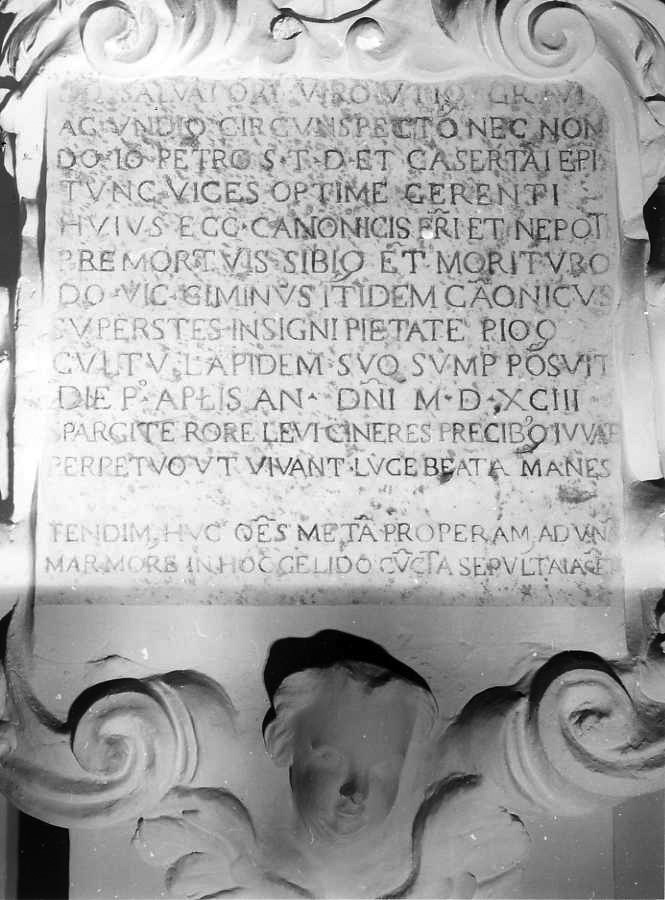 DO SALVATORI VIRO VTIQ GRAVI
AC VNDIQ CIRCVNSPECTO NEC NON
DO·IO·PETRO S·T·D·ET CASERTAI EPI
TVNC VICES OPTIME GERENTI
HVIVS ECC·CANONICIS FR̃I ET NEPOTI
PREMORTVIS SIBIQ ET̃ MORITVRO
DO·VIC·CIMINVS ITIDEM CÃONICVS
SVPERSTES INSIGNI PIETATE PIOQ
CVLTV LAPIDEM SVO SVMP PÕSVIT
DIE P·APŁIS AN· DÑI M·D·XCIII
SPARGITE RORE LEVI CINERES PRECIBQ IVVATE
PERPETVO VT VIVANT LVCE BEATA MANES
TENDIM HVC OẼS METÃ PROPERAM AD VNÃ
MARMORE IN HOC GELIDO CṼCTA SEPVLTA IACẼT